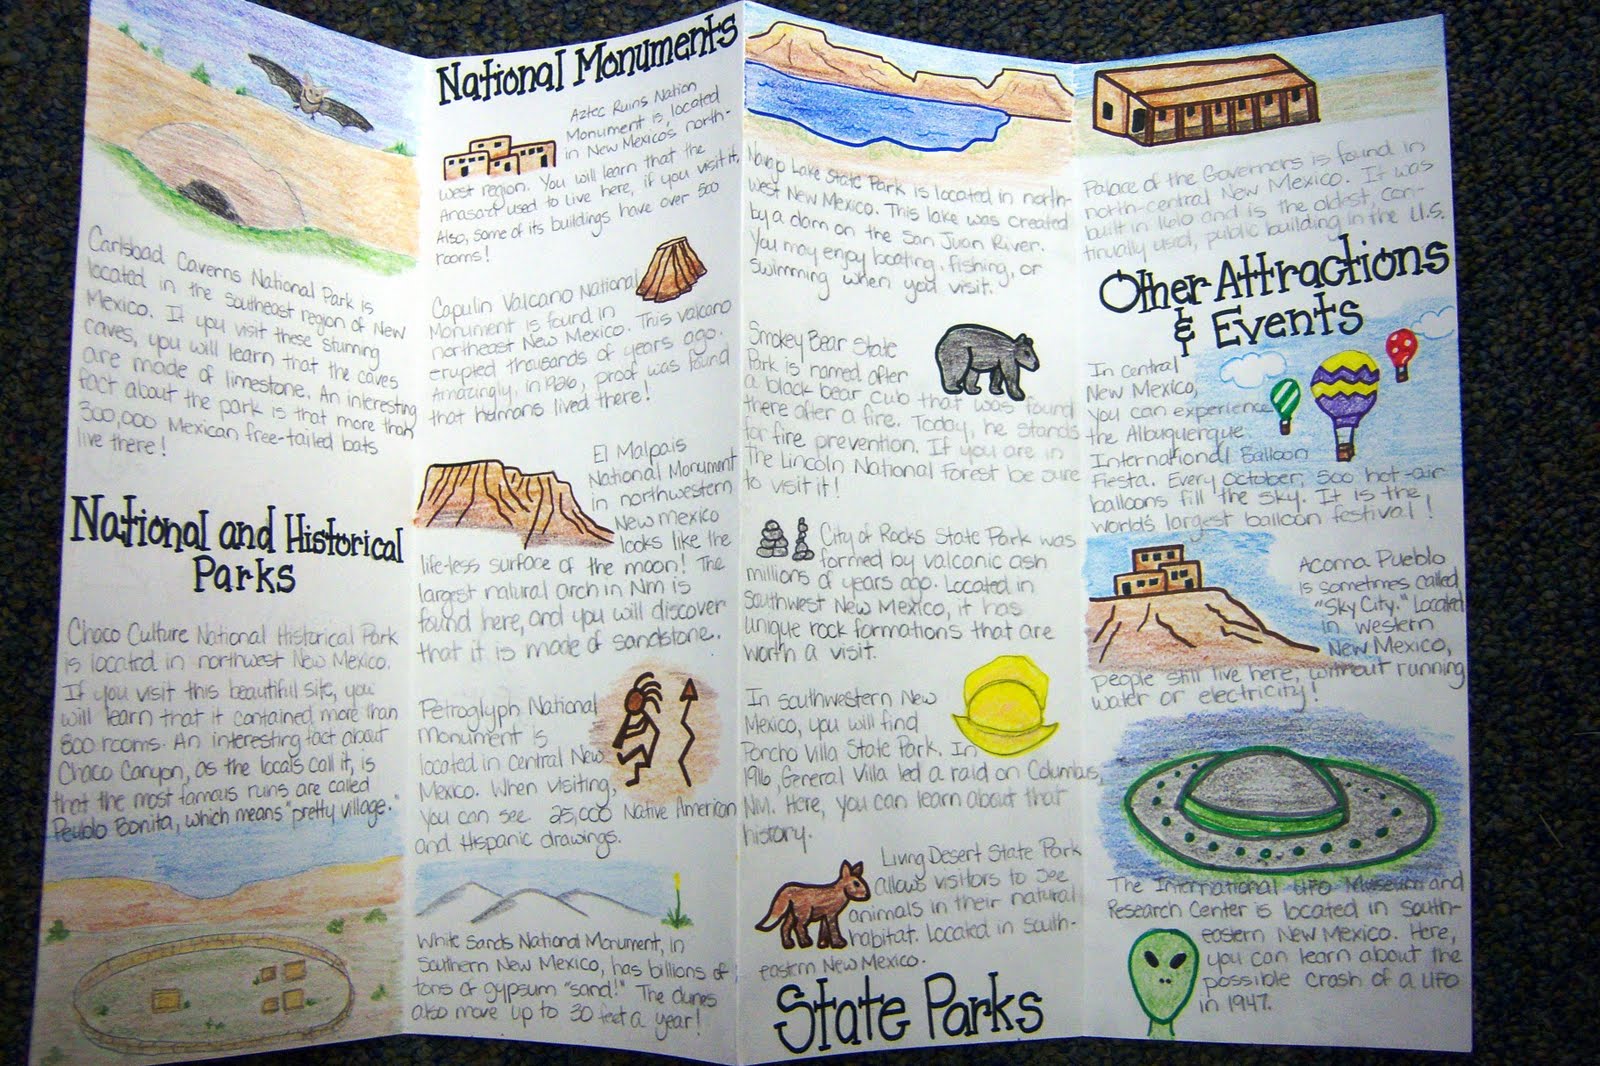 Carlsbad Caverns National Park is
located in the southeast region of New
Mexico. If you visit these stunning
caves, you will learn that the caves
are made of limestone. An interesting
fact about the park is that more than
300,000 Mexican free-tailed bats
live there!
National and Historical
Parks
Chaco Culture National Historical Park
is located in northwest New Mexico.
If you visit this beautiful site, you
will learn that it contained more than
800 rooms. An interesting fact about
Chaco Canyon, as the locals call it, is
that the most famous ruins are called
Peublo Bonita, which means "pretty village."
National Monuments
Aztec Ruins Nation
Monument is, located
in New Mexico's north-
west region. You will learn that the
Anasazi used to live here, if you visit it.
Also, some of its buildings have over 500
rooms!
Capulin Valcano National
Monument is found in
northeast New Mexico. This valcano
erupted thousands of years ago.
Amazingly, in 1926, proof was found
that humans lived there!
El Malpais
National Monument
in northwestern
New Mexico
looks like the
life-less surface of the moon! The
largest natural arch in NM is
found here, and you will discover
that it is made of sandstone.
Petroglyph National
Monument is
located in central New
Mexico. When visiting,
you can see 25,000 Native American
and Hispanic drawings.
White Sands National Monument, in
Southern New Mexico, has billions of
tons of gypsum "sand!" The dunes
also move up to 30 feet a year!
Navajo Lake State Park is located in north-
west New Mexico. This lake was created
by a dam on the San Juan River.
You may enjoy boating, fishing, or
swimming when you visit.
Smokey Bear State
Park is named after
a black bear cub that was found
there after a fire. Today, he stands
for fire prevention. If you are in
The Lincoln National Forest be sure
to visit it!
City of Rocks State Park was
formed by valcanic ash
millions of years ago. Located in
Southwest New Mexico, it has
unique rock formations that are
worth a visit.
In southwestern New
Mexico, you will find
Poncho Villa State Park. In
1916, General Villa led a raid on Columbus,
NM. Here, you can learn about that
history.
Living Desert State Park
allows visitors to see
animals in their natural
habitat. Located in south-
eastern New Mexico.
State Parks
Palace of the Governors is found in
north-central New Mexico. It was
built in 1610 and is the oldest, con-
tinually used, public building in the U.S.
Other Attractions
& Events
In central
New Mexico,
you can experience
the Albuquerque
International Balloon
Fiesta. Every October, 500 hot-air
balloons fill the sky. It is the
world's largest balloon festival!
Acoma Pueblo
is sometimes called
"Sky City." Located
in western
New Mexico,
people still live here, without running
water or electricity!
The International UFO Museum and
Research Center is located in South-
eastern New Mexico. Here,
you can learn about the
possible crash of a UFO
in 1947.